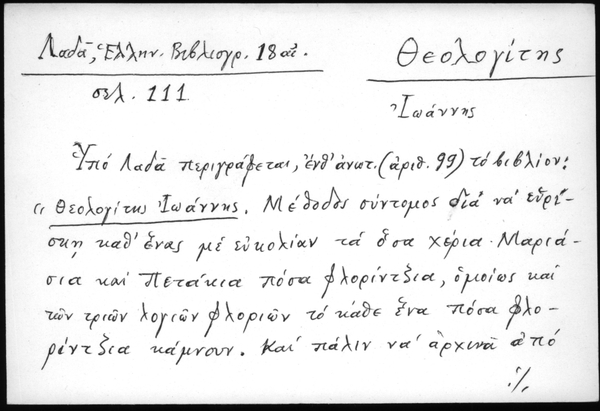 Λαδᾶ, Ἑλλην. Βιβλιογρ. 18 αἰ.
σελ. 111
Θεολογίτης
Ἰωάννης
Ὑπό Λαδᾶ περιγράφεται, ἔνθ' ἀνωτ. (ἀριθ. 99) τό βιβλίον:
" Θεολογίτης Ἰωάννης. Μέθοδος σύντομος διά νά εὑρί-
σκῃ καθ' ἕνας μέ εὐκολίαν τά ὅσα χέρια. Μαριά-
σια καί Πετάκια πόσα φλορίντζια, ὁμοίως καί
τῶν τριῶν λογιῶν φλοριῶν τό κάθε ἕνα πόσα φλο-
ρίντζια κάμνουν. Καί πάλιν νά ἀρχινᾶ ἀπό
./.